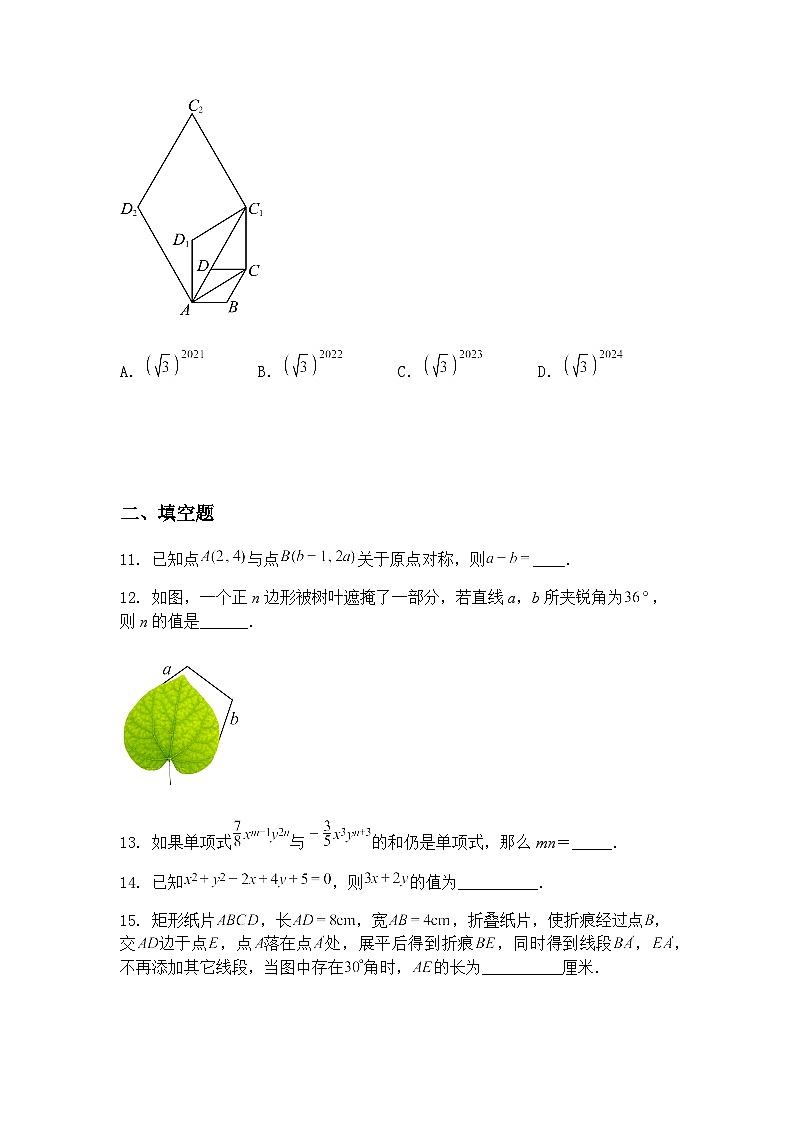 C₂
D₂
C₁
D₁
D
C
A
B
A. (√3)^2021 B. (√3)^2022 C. (√3)^2023 D. (√3)^2024
二、填空题
11. 已知点A(2, 4)与点B(b−1, 2a)关于原点对称，则a−b=____.
12. 如图，一个正n边形被树叶遮掩了一部分，若直线a，b所夹锐角为36°，
则n的值是______.
a
b
13. 如果单项式7/8x^(m−1)y^(2n)与−3/5x^3y^(n+3)的和仍是单项式，那么mn＝_____.
14. 已知x²+y²−2x+4y+5=0，则3x+2y的值为__________.
15. 矩形纸片ABCD，长AD=8cm，宽AB=4cm，折叠纸片，使折痕经过点B，
交AD边于点E，点A落在点A′处，展平后得到折痕BE，同时得到线段BA′，EA′，
不再添加其它线段，当图中存在30°角时，AE的长为__________厘米.